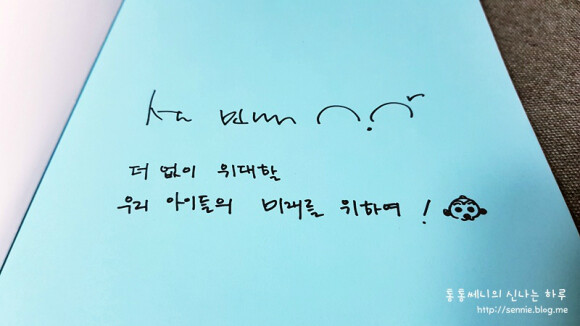 더 없이 위대할
우리 아이들의 미래를 위하여 !
통통쎄니의 신나는 하루
http://sennie.blog.me